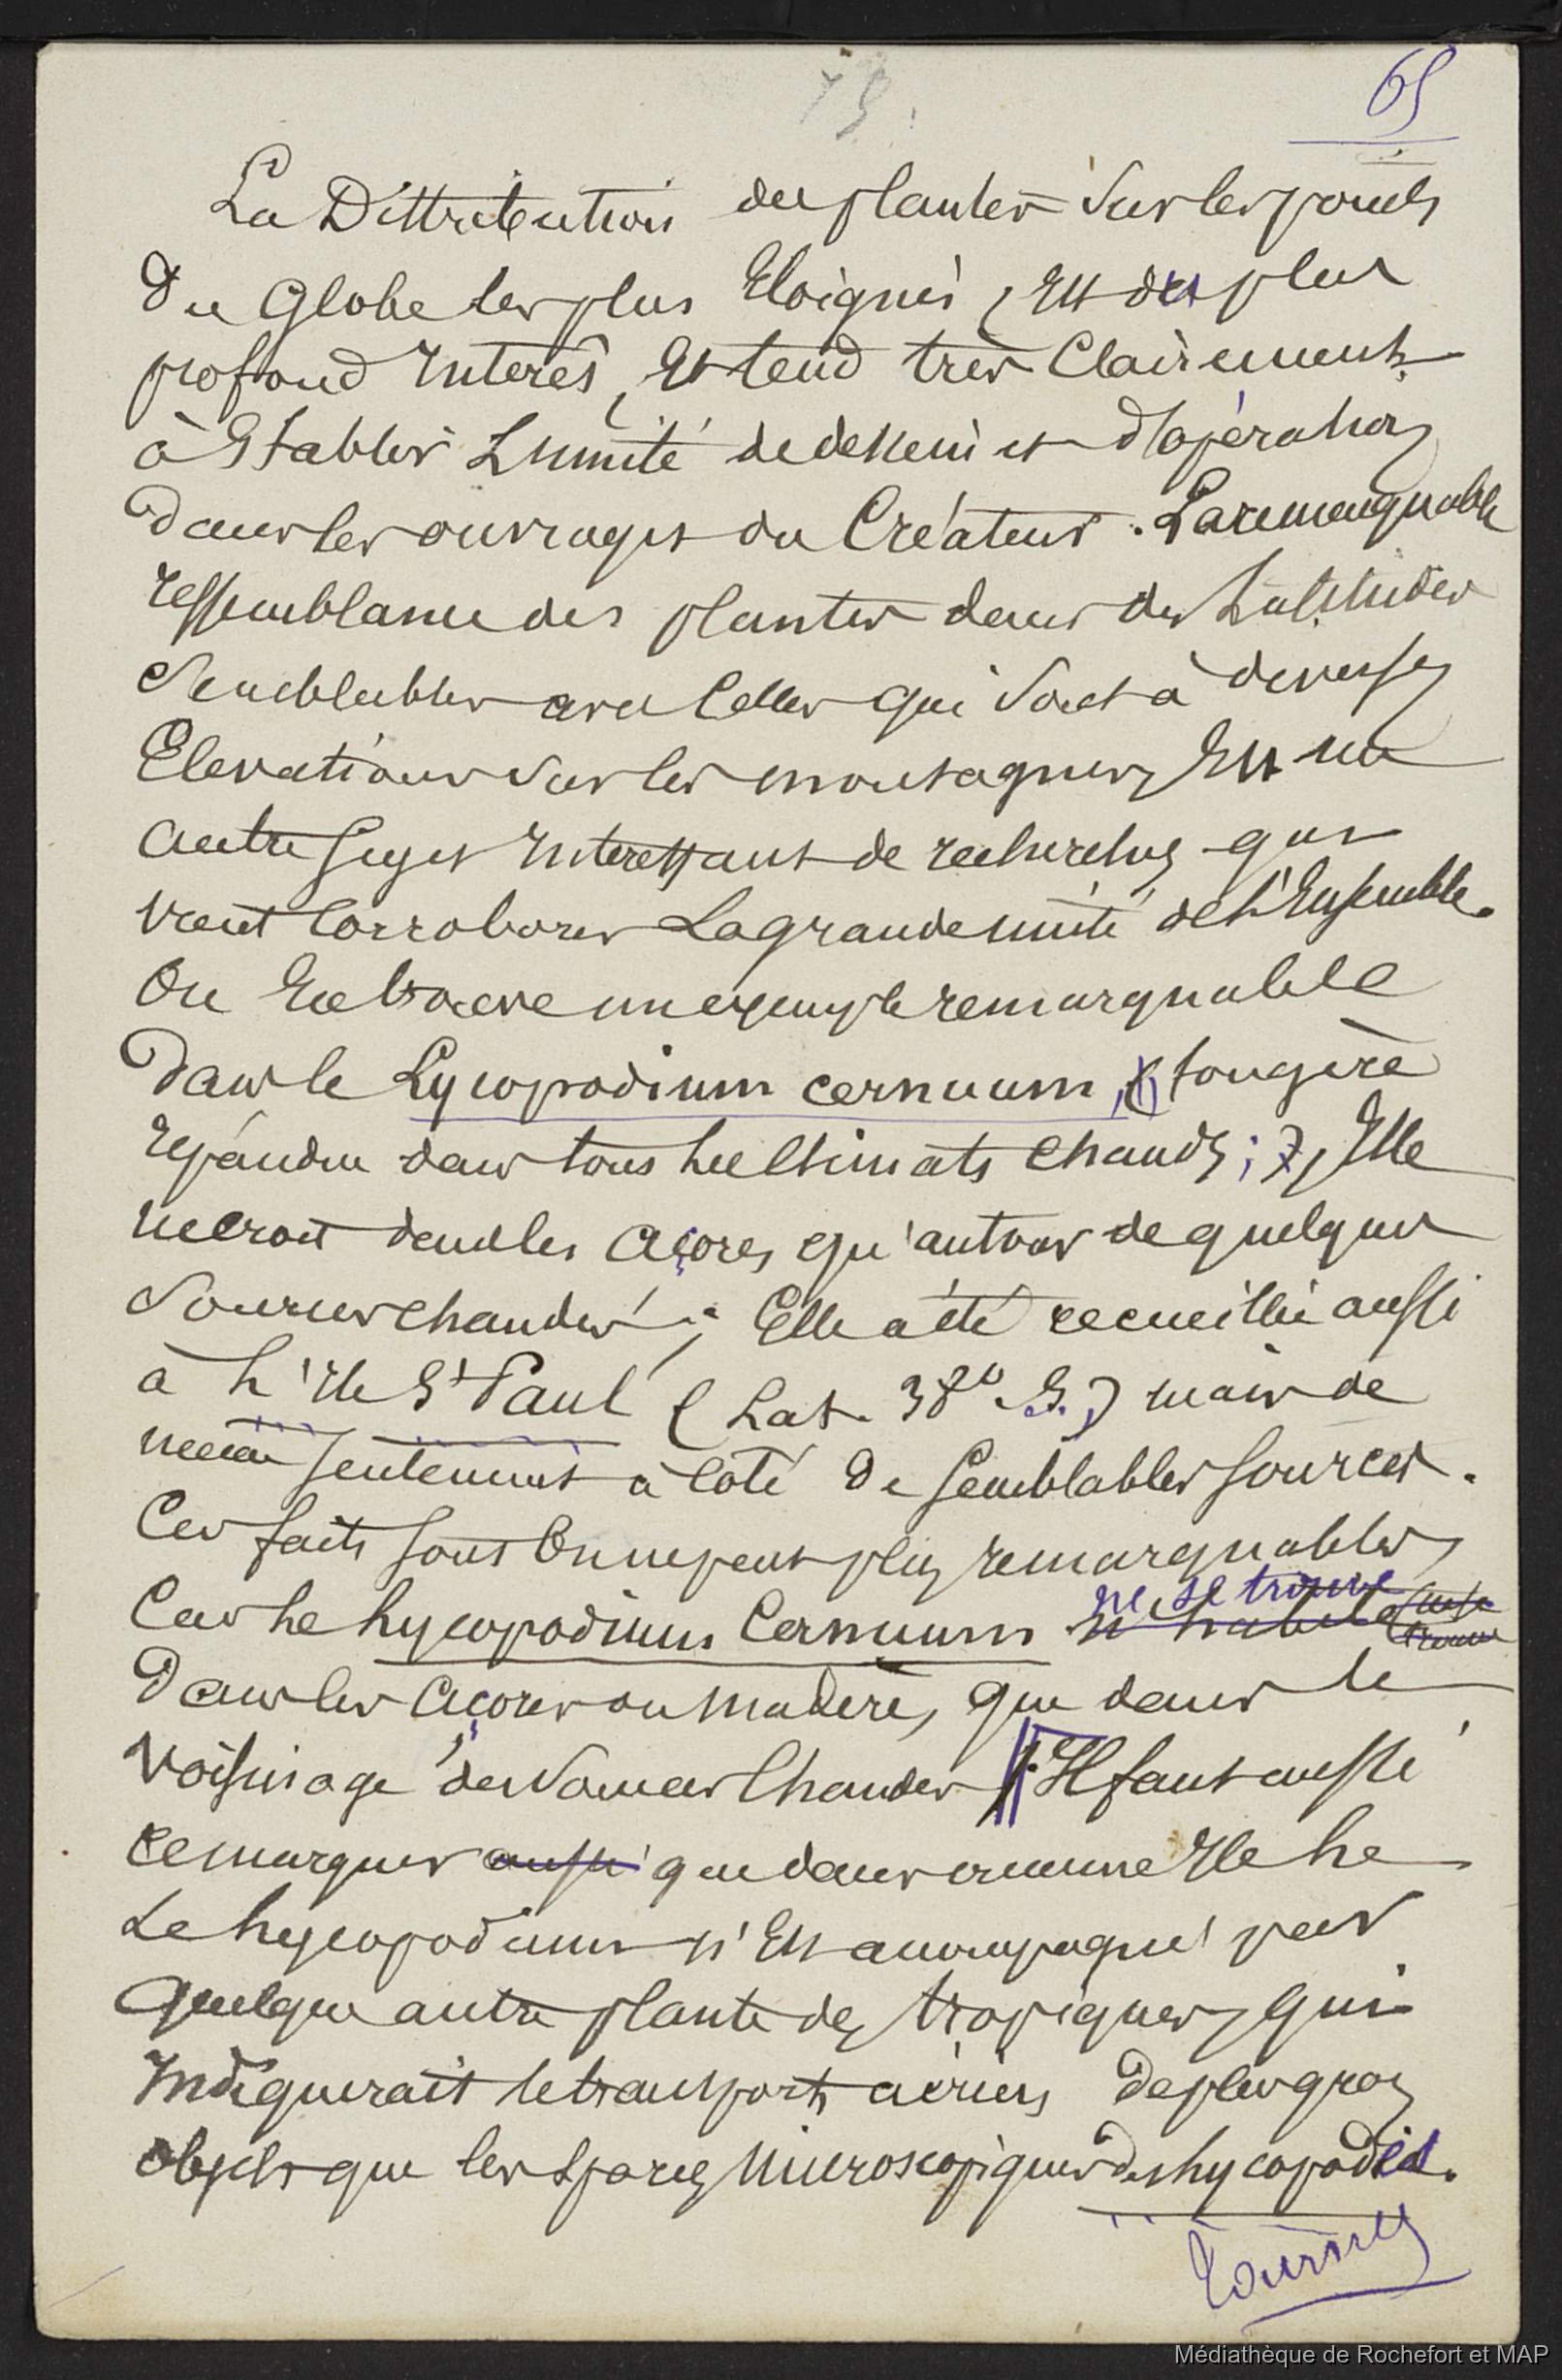 75.
65
La Distribution des plantes sur les points
du Globe les plus Eloignés, Est du plus
profond Interês, Et tend très Clairement
à Etablir L'unité de dessein et d'opération
dans les ouvrages du Créateur. La remarquable
ressemblance des plantes dans des Latitudes
semblables avec Celles qui sont à diverses
Elevations sur les montagnes, Est un
autre sujet Interessant de recherches qui
vient Corroborer La grande unité de L'Ensemble.
On En trouve un exemple remarquable
Dans le Lycopodium cernuum, fougère
répandue dans tous les Climats chauds ; Elle
ne croit dans les Açores qu'autour de quelques
Sources chaudes ; Elle a été recueillie aussi
à L'Ile St Paul (Lat. 38° S.) mais de
même seulement à côté de semblables sources.
Ces faits sont On ne peut plus remarquables,
Car Le Lycopodium Cernuum ne se trouve n'habite (ne se trouve
Dans les Açores ou Madère, que dans le
voisinage des Sources Chaudes. Il faut aussi
remarquer aussi que dans aucune Ile Le
Le Lycopodium n'Est accompagné par
quelque autre plante des tropiques, qui
Indiquerait le transport aérien de plus gros
objets que les spores Microscopiques des Lycopodes.
Tournez
Médiathèque de Rochefort et MAP